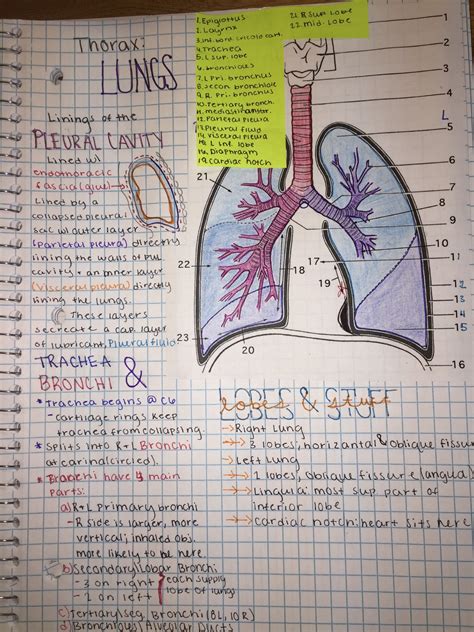 Thorax:
LUNGS
Linings of the
PLEURAL CAVITY
Lined w/
endothoracic
fascia (glue)
Lined by a
collapsed pleural
sac w/outer layer
(Parietal pleura) directly
lining the walls of pul.
cavity + an inner layer
(visceral pleura) directly
lining the lungs.
These layers
secreate a cap. layer
of lubricant, Pleural fluid
TRACHEA &
BRONCHI
* Trachea begins @ C6
- cartilage rings keep
trachea from collapsing.
* Splits into R+L Bronchi
at carina (circled).
* Bronchi have 4 main
parts:
a) R+L primary bronchi
- R side is larger, more
vertical; inhaled obj.
more likely to be here
b) Secondary/Lobar Bronchi
- 3 on right
- 2 on left
each supply
lobe of lungs
c) Tertiary/seg Bronchi (8L, 10R)
d) Bronchious/Alveolar Ducts
1. Epiglottus
2. Layrnx
4. Trachea
5. L sup. lobe
6. bronchioles
7. L Pri. bronchus
8. secon bronchiole
9. R. Pri-bronchus
10. Tertiary bronch.
12. Parietal Pleura
13. Pleural fluid
14. Visceral Pleura
15. L inf. lobe
16. Diaphragm
19. cardiac notch
21. R sup. lobe
22. mid. lobe
1
2
3
4
L
5
6
7
8
9
10
11
12
13
14
15
16
17
18
19
20
21
22
23
LOBES & STUFF
Right lung
3 lobes, horizantal & oblique fissure
Left Lung
2 lobes, oblique fissure
Lingula: most sup part of
inferior lobe
cardiac notch: heart sits here